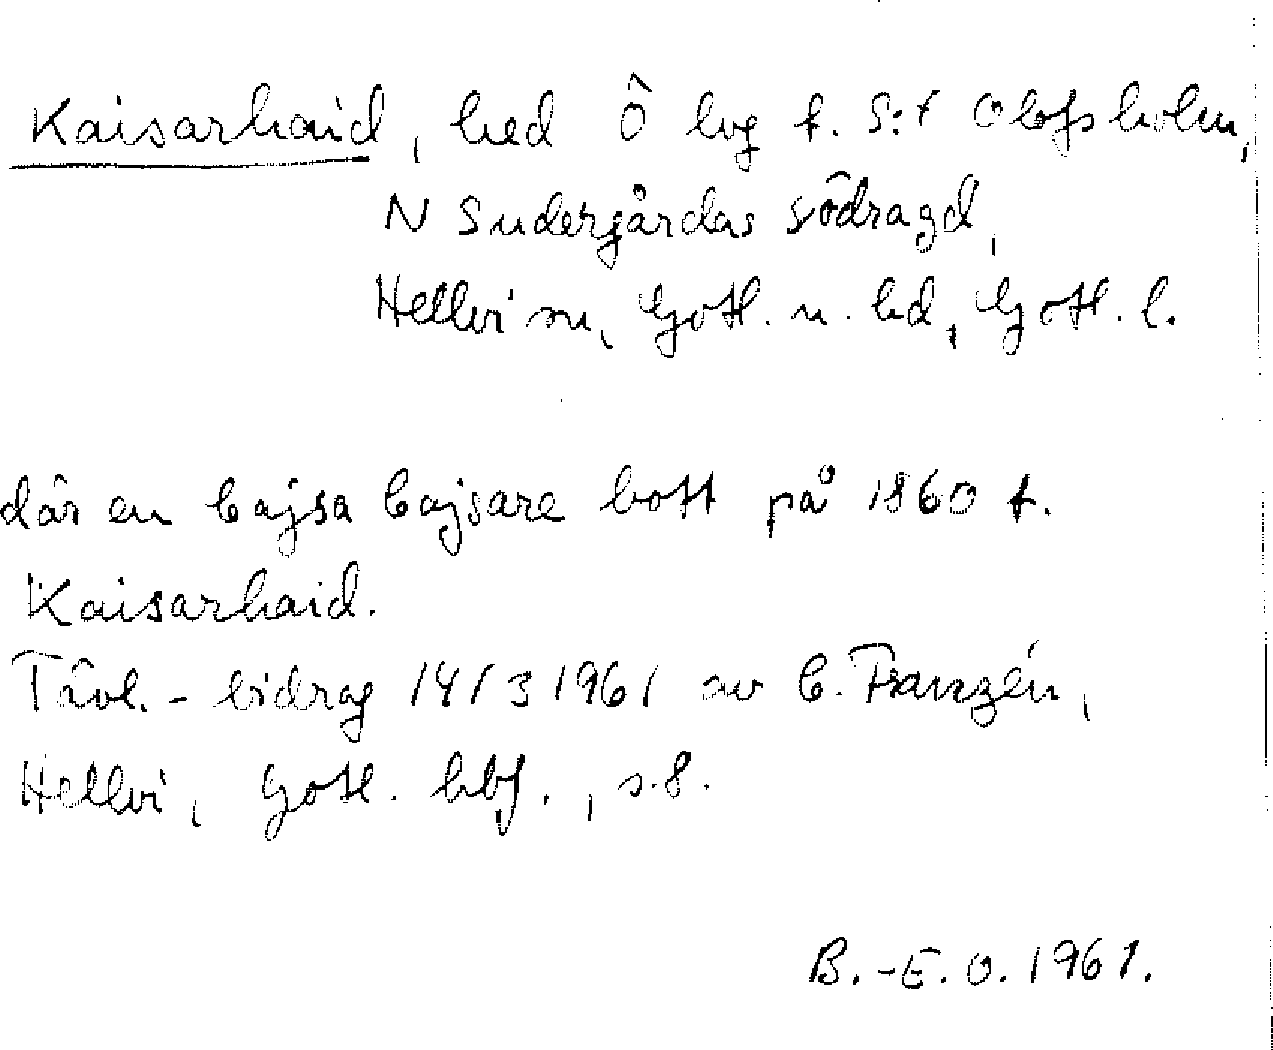 Kaisarhaid, hed Ö lvg t. S:t Olofsholm,
N Sudergårdas södragd,
Hellvi sn, Gotl. n. hd, Gotl. l.
där en Cajsa Cajsare bott på 1860 t.
Kaisarhaid.
Tävl.-bidrag 14/3 1961 av C. Franzén,
Hellvi, Gotl. hbf., s.8.
B.-E.O. 1961.